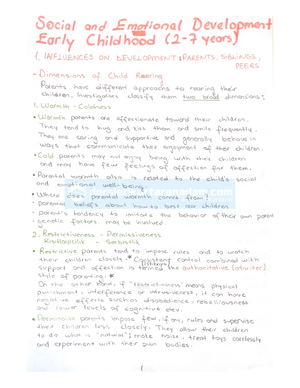 Social and Emotional Development
Early Childhood (2-7 years)
1. INFLUENCES ON DEVELOPMENT: PARENTS, SIBLINGS,
PEERS
- Dimensions of Child Rearing
Parents have different approaches to rearing their
children. Investigators classify them two broad dimensions:
1. Warmth - Coldness
• Warmth parents are affectionate toward their children.
They tend to hug and kiss them and smile frequently.
They are caring and supportive and generally behave in
ways that communicate their enjoyment of their children.
• Cold parents may not enjoy being with their children
and may have few feelings of affection for them.
• Parental warmth also is related to the child's social
and emotional well-being.
• Where does parental warmth comes from?
- parental beliefs about how to best rear children
- parent's tendency to imitate the behavior of their own parent
- genetic factors may be involved
2. Restrictiveness - Permissiveness
• Restrictive parents tend to impose rules and to watch
their children closely. * Consistent control combined with
support and affection is termed the authoritative
style of parenting. *
On the other hand, if "restrictiveness" means physical
punishment, interference or intrusiveness, it can have
negative effects such as disobedience, rebelliousness
and lower levels of cognitive dev.
• Permissive parents impose few, if any, rules and supervise
their children less closely. They allow their children
to do what is "natural"; make noise, treat toys carelessly
and experiment with their own bodies.
1